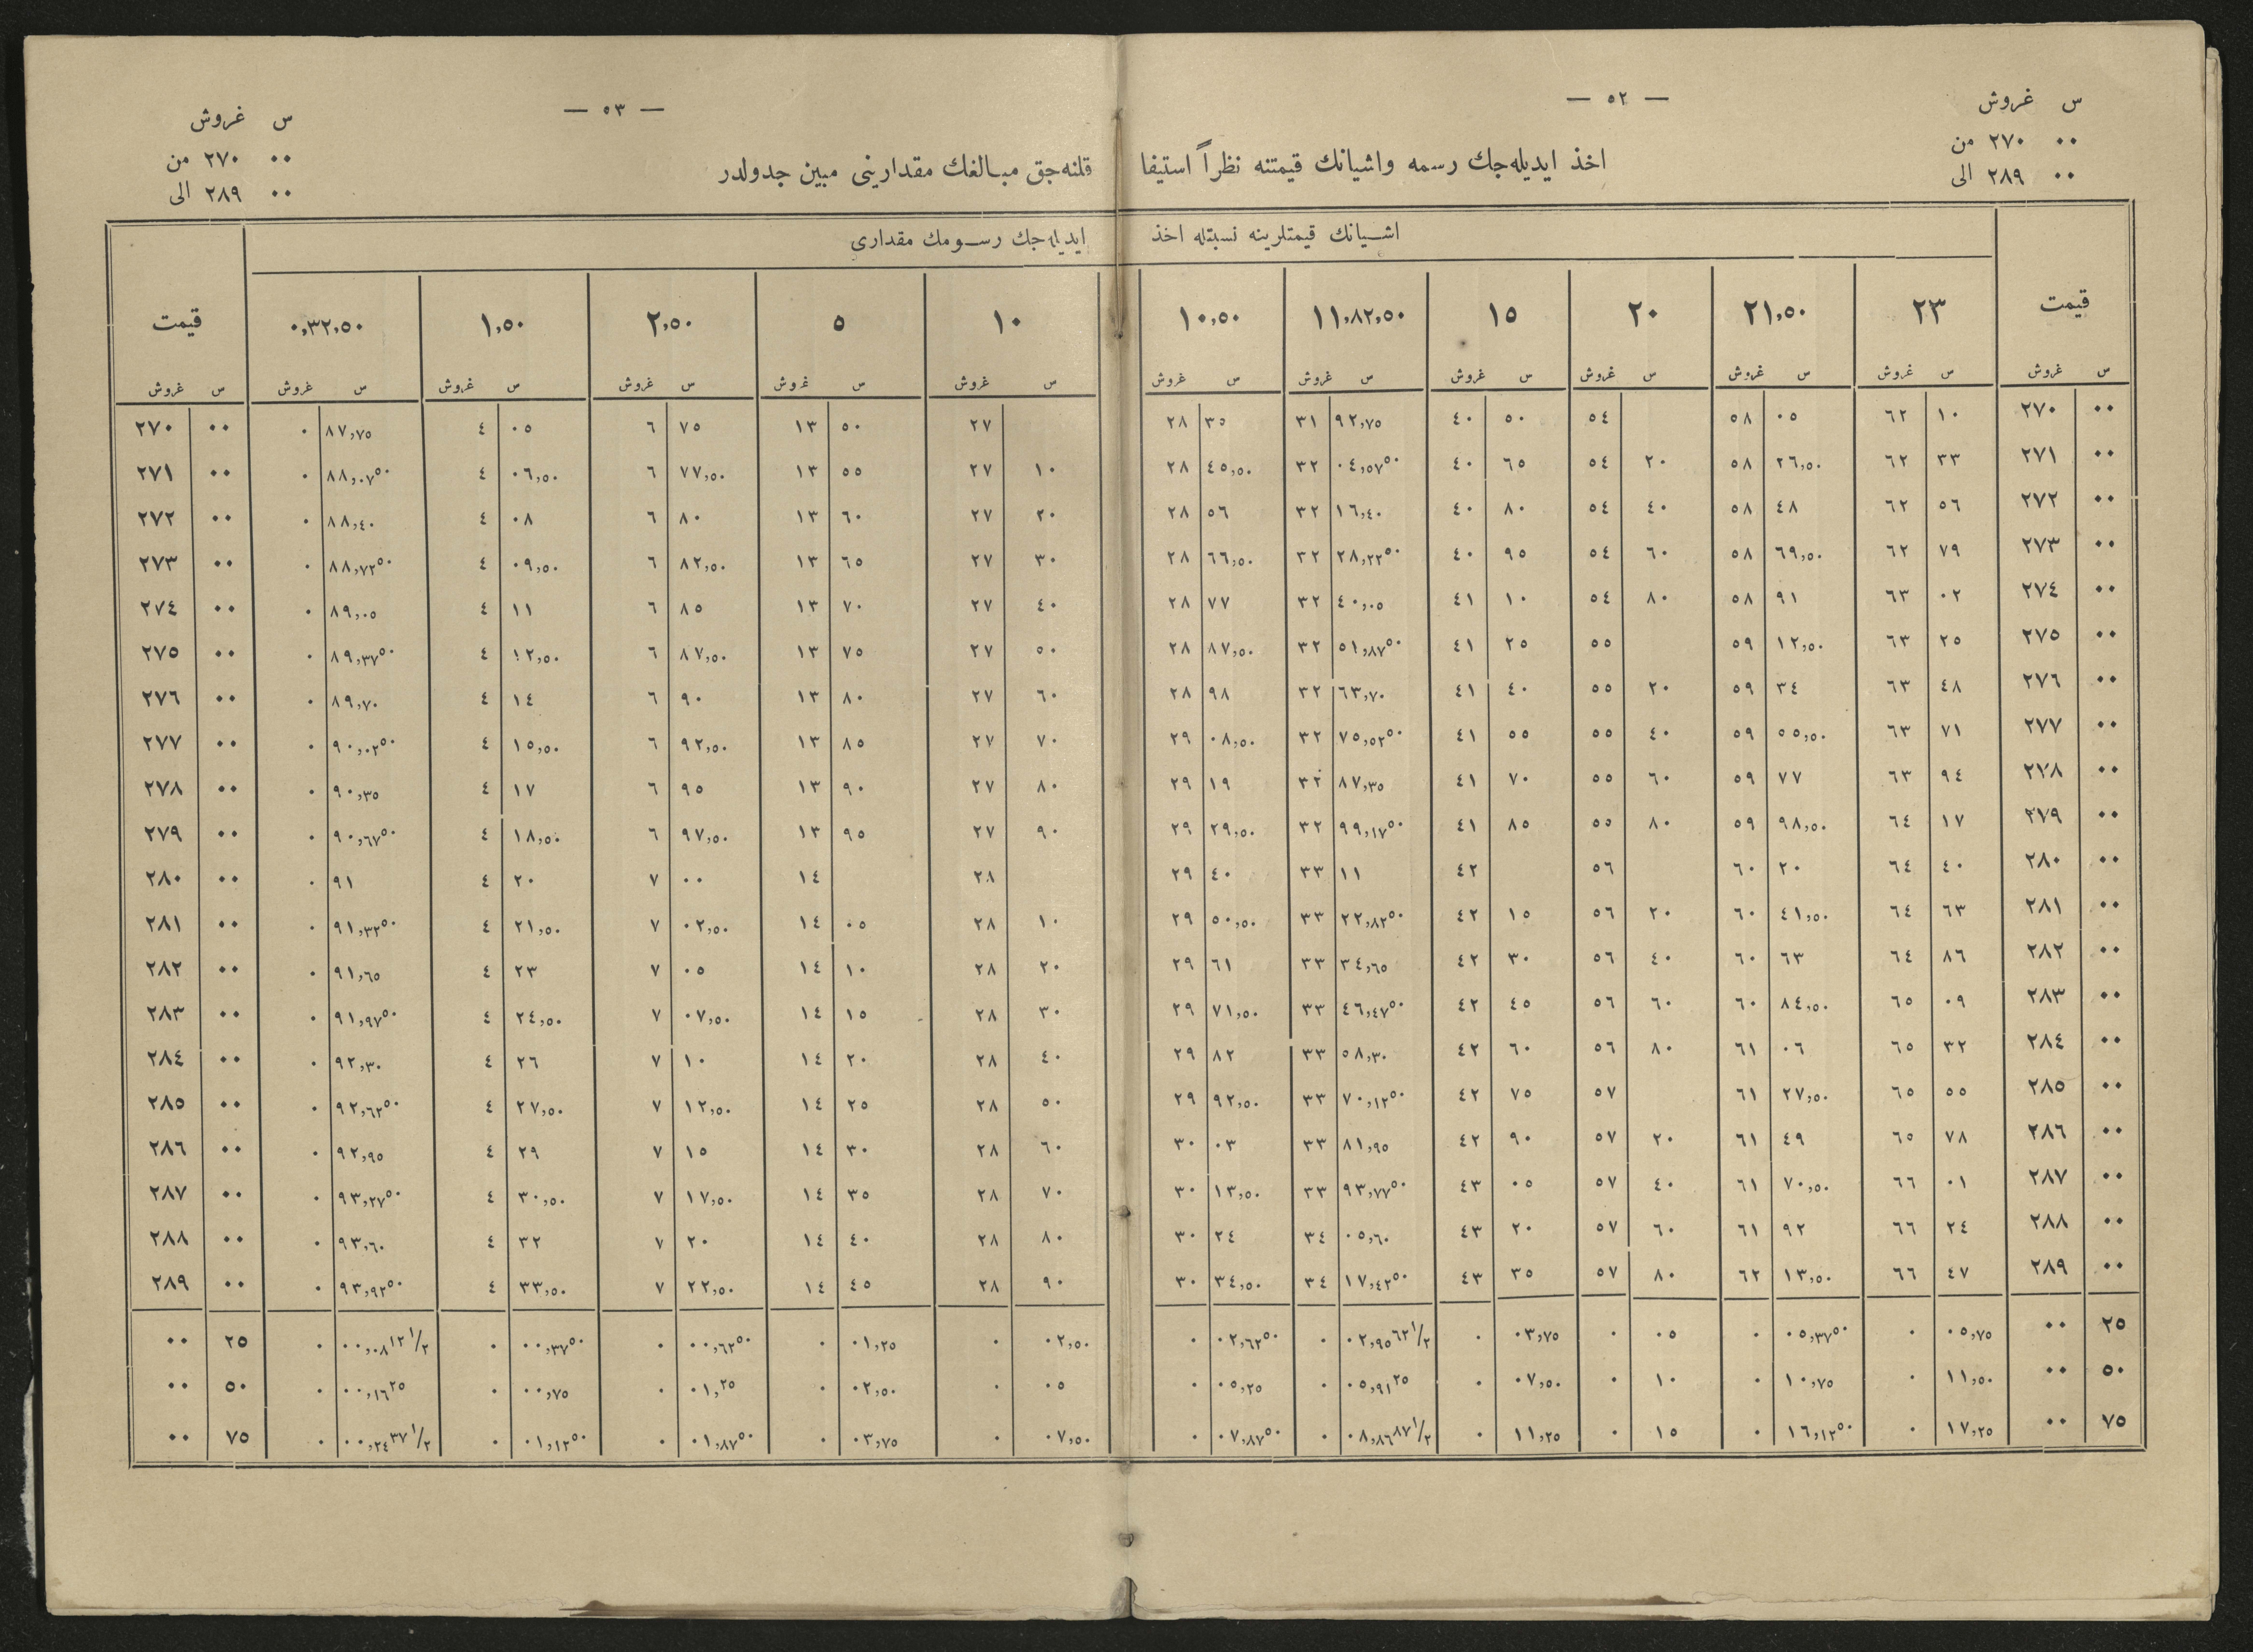 س غروش — ٥٢ — — ٥٣ — س غروش
٠٠ ٢٧٠ من ٠٠ ٢٧٠ من
اخذ ايديله‌جك رسمه واشيانك قيمتنه نظراً استيفا قلنه‌جق مبالغك مقدارينى مبين جدولدر
٠٠ ٢٨٩ الى ٠٠ ٢٨٩ الى
اشيانك قيمتلرينه نسبتله اخذ ايديله‌جك رسومك مقدارى
قيمت ٢٣ ٢١,٥٠ ٢٠ ١٥ ١١,٨٢,٥٠ ١٠,٥٠ ١٠ ٥ ٢,٥٠ ١,٥٠ ٠,٣٢,٥٠ قيمت
س غروش س غروش س غروش س غروش س غروش س غروش س غروش س غروش س غروش س غروش س غروش س غروش س غروش
٠٠ ٢٧٠ ١٠ ٦٢ ٠٥ ٥٨ ٥٤ ٥٠ ٤٠ ٩٢,٧٥ ٣١ ٣٥ ٢٨ ٢٧ ٥٠ ١٣ ٧٥ ٦ ٠٥ ٤ ٨٧,٧٥ ٠ ٠٠ ٢٧٠
٠٠ ٢٧١ ٣٣ ٦٢ ٢٦,٥٠ ٥٨ ٢٠ ٥٤ ٦٥ ٤٠ ٠٤,٥٧٥٠ ٣٢ ٤٥,٥٠ ٢٨ ١٠ ٢٧ ٥٥ ١٣ ٧٧,٥٠ ٦ ٠٦,٥٠ ٤ ٨٨,٠٧٥٠ ٠ ٠٠ ٢٧١
٠٠ ٢٧٢ ٥٦ ٦٢ ٤٨ ٥٨ ٤٠ ٥٤ ٨٠ ٤٠ ١٦,٤٠ ٣٢ ٥٦ ٢٨ ٢٠ ٢٧ ٦٠ ١٣ ٨٠ ٦ ٠٨ ٤ ٨٨,٤٠ ٠ ٠٠ ٢٧٢
٠٠ ٢٧٣ ٧٩ ٦٢ ٦٩,٥٠ ٥٨ ٦٠ ٥٤ ٩٥ ٤٠ ٢٨,٢٢٥٠ ٣٢ ٦٦,٥٠ ٢٨ ٣٠ ٢٧ ٦٥ ١٣ ٨٢,٥٠ ٦ ٠٩,٥٠ ٤ ٨٨,٧٢٥٠ ٠ ٠٠ ٢٧٣
٠٠ ٢٧٤ ٠٢ ٦٣ ٩١ ٥٨ ٨٠ ٥٤ ١٠ ٤١ ٤٠,٠٥ ٣٢ ٧٧ ٢٨ ٤٠ ٢٧ ٧٠ ١٣ ٨٥ ٦ ١١ ٤ ٨٩,٠٥ ٠ ٠٠ ٢٧٤
٠٠ ٢٧٥ ٢٥ ٦٣ ١٢,٥٠ ٥٩ ٥٥ ٢٥ ٤١ ٥١,٨٧٥٠ ٣٢ ٨٧,٥٠ ٢٨ ٥٠ ٢٧ ٧٥ ١٣ ٨٧,٥٠ ٦ ١٢,٥٠ ٤ ٨٩,٣٧٥٠ ٠ ٠٠ ٢٧٥
٠٠ ٢٧٦ ٤٨ ٦٣ ٣٤ ٥٩ ٢٠ ٥٥ ٤٠ ٤١ ٦٣,٧٠ ٣٢ ٩٨ ٢٨ ٦٠ ٢٧ ٨٠ ١٣ ٩٠ ٦ ١٤ ٤ ٨٩,٧٠ ٠ ٠٠ ٢٧٦
٠٠ ٢٧٧ ٧١ ٦٣ ٥٥,٥٠ ٥٩ ٤٠ ٥٥ ٥٥ ٤١ ٧٥,٥٢٥٠ ٣٢ ٠٨,٥٠ ٢٩ ٧٠ ٢٧ ٨٥ ١٣ ٩٢,٥٠ ٦ ١٥,٥٠ ٤ ٩٠,٠٢٥٠ ٠ ٠٠ ٢٧٧
٠٠ ٢٧٨ ٩٤ ٦٣ ٧٧ ٥٩ ٦٠ ٥٥ ٧٠ ٤١ ٨٧,٣٥ ٣٢ ١٩ ٢٩ ٨٠ ٢٧ ٩٠ ١٣ ٩٥ ٦ ١٧ ٤ ٩٠,٣٥ ٠ ٠٠ ٢٧٨
٠٠ ٢٧٩ ١٧ ٦٤ ٩٨,٥٠ ٥٩ ٨٠ ٥٥ ٨٥ ٤١ ٩٩,١٧٥٠ ٣٢ ٢٩,٥٠ ٢٩ ٩٠ ٢٧ ٩٥ ١٣ ٩٧,٥٠ ٦ ١٨,٥٠ ٤ ٩٠,٦٧٥٠ ٠ ٠٠ ٢٧٩
٠٠ ٢٨٠ ٤٠ ٦٤ ٢٠ ٦٠ ٥٦ ٤٢ ١١ ٣٣ ٤٠ ٢٩ ٢٨ ١٤ ٠٠ ٧ ٢٠ ٤ ٩١ ٠ ٠٠ ٢٨٠
٠٠ ٢٨١ ٦٣ ٦٤ ٤١,٥٠ ٦٠ ٢٠ ٥٦ ١٥ ٤٢ ٢٢,٨٢٥٠ ٣٣ ٥٠,٥٠ ٢٩ ١٠ ٢٨ ٠٥ ١٤ ٠٢,٥٠ ٧ ٢١,٥٠ ٤ ٩١,٣٢٥٠ ٠ ٠٠ ٢٨١
٠٠ ٢٨٢ ٨٦ ٦٤ ٦٣ ٦٠ ٤٠ ٥٦ ٣٠ ٤٢ ٣٤,٦٥ ٣٣ ٦١ ٢٩ ٢٠ ٢٨ ١٠ ١٤ ٠٥ ٧ ٢٣ ٤ ٩١,٦٥ ٠ ٠٠ ٢٨٢
٠٠ ٢٨٣ ٠٩ ٦٥ ٨٤,٥٠ ٦٠ ٦٠ ٥٦ ٤٥ ٤٢ ٤٦,٤٧٥٠ ٣٣ ٧١,٥٠ ٢٩ ٣٠ ٢٨ ١٥ ١٤ ٠٧,٥٠ ٧ ٢٤,٥٠ ٤ ٩١,٩٧٥٠ ٠ ٠٠ ٢٨٣
٠٠ ٢٨٤ ٣٢ ٦٥ ٠٦ ٦١ ٨٠ ٥٦ ٦٠ ٤٢ ٥٨,٣٠ ٣٣ ٨٢ ٢٩ ٤٠ ٢٨ ٢٠ ١٤ ١٠ ٧ ٢٦ ٤ ٩٢,٣٠ ٠ ٠٠ ٢٨٤
٠٠ ٢٨٥ ٥٥ ٦٥ ٢٧,٥٠ ٦١ ٥٧ ٧٥ ٤٢ ٧٠,١٢٥٠ ٣٣ ٩٢,٥٠ ٢٩ ٥٠ ٢٨ ٢٥ ١٤ ١٢,٥٠ ٧ ٢٧,٥٠ ٤ ٩٢,٦٢٥٠ ٠ ٠٠ ٢٨٥
٠٠ ٢٨٦ ٧٨ ٦٥ ٤٩ ٦١ ٢٠ ٥٧ ٩٠ ٤٢ ٨١,٩٥ ٣٣ ٠٣ ٣٠ ٦٠ ٢٨ ٣٠ ١٤ ١٥ ٧ ٢٩ ٤ ٩٢,٩٥ ٠ ٠٠ ٢٨٦
٠٠ ٢٨٧ ٠١ ٦٦ ٧٠,٥٠ ٦١ ٤٠ ٥٧ ٠٥ ٤٣ ٩٣,٧٧٥٠ ٣٣ ١٣,٥٠ ٣٠ ٧٠ ٢٨ ٣٥ ١٤ ١٧,٥٠ ٧ ٣٠,٥٠ ٤ ٩٣,٢٧٥٠ ٠ ٠٠ ٢٨٧
٠٠ ٢٨٨ ٢٤ ٦٦ ٩٢ ٦١ ٦٠ ٥٧ ٢٠ ٤٣ ٠٥,٦٠ ٣٤ ٢٤ ٣٠ ٨٠ ٢٨ ٤٠ ١٤ ٢٠ ٧ ٣٢ ٤ ٩٣,٦٠ ٠ ٠٠ ٢٨٨
٠٠ ٢٨٩ ٤٧ ٦٦ ١٣,٥٠ ٦٢ ٨٠ ٥٧ ٣٥ ٤٣ ١٧,٤٢٥٠ ٣٤ ٣٤,٥٠ ٣٠ ٩٠ ٢٨ ٤٥ ١٤ ٢٢,٥٠ ٧ ٣٣,٥٠ ٤ ٩٣,٩٢٥٠ ٠ ٠٠ ٢٨٩
٢٥ ٠٠ ٠٥,٧٥ ٠ ٠٥,٣٧٥٠ ٠ ٠٥ ٠ ٠٣,٧٥ ٠ ٠٢,٩٥٦٢ ١/٢ ٠ ٠٢,٦٢٥٠ ٠ ٠٢,٥٠ ٠ ٠١,٢٥ ٠ ٠٠,٦٢٥٠ ٠ ٠٠,٣٧٥٠ ٠ ٠٠,٠٨١٢ ١/٢ ٠ ٢٥ ٠٠
٥٠ ٠٠ ١١,٥٠ ٠ ١٠,٧٥ ٠ ١٠ ٠ ٠٧,٥٠ ٠ ٠٥,٩١٢٥ ٠ ٠٥,٢٥ ٠ ٠٥ ٠ ٠٢,٥٠ ٠ ٠١,٢٥ ٠ ٠٠,٧٥ ٠ ٠٠,١٦٢٥ ٠ ٥٠ ٠٠
٧٥ ٠٠ ١٧,٢٥ ٠ ١٦,١٢٥٠ ٠ ١٥ ٠ ١١,٢٥ ٠ ٠٨,٨٦٨٧ ١/٢ ٠ ٠٧,٨٧٥٠ ٠ ٠٧,٥٠ ٠ ٠٣,٧٥ ٠ ٠١,٨٧٥٠ ٠ ٠١,١٢٥٠ ٠ ٠٠,٢٤٣٧ ١/٢ ٠ ٧٥ ٠٠